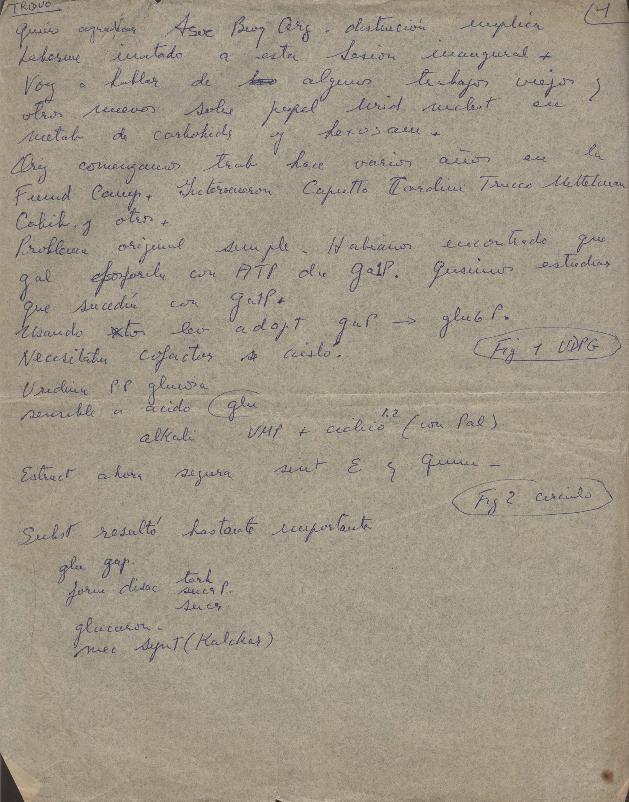 TROVO
1
Quiero agradecer Asoc Bioq Arg. distinción implica
haberme invitado a esta Sesion inaugural +
Voy a hablar de algunos trabajos viejos y
otros nuevos sobre papel Urid nucleot en
metab de carbohids y hexosam +
Orig comenzamos trab hace varios años en la
Fund Camp. + Intervinieron Caputto Cardini Trucco Mittelman
Cabib. y otros +
Problema original simple. Habiamos encontrado que
gal fosforila con ATP da Ga1P. Quisimos estudiar
que sucedia con Ga1P +
Usando lev adapt gaP → glu6P.
Necesitaba cofactor se aisló.
Fig 1 UDPG
Uridina P.P glucosa
sensible a ácido glu
alkali UMP + ciclico 1,2 (con Pal)
Extract ahora segura sint E y Quim -
Fig 2 circulo
Subst resultó bastante importante
glu gap.
form disac treh
sucr P.
sucr
glucuron -
mec synt (Kalckar)